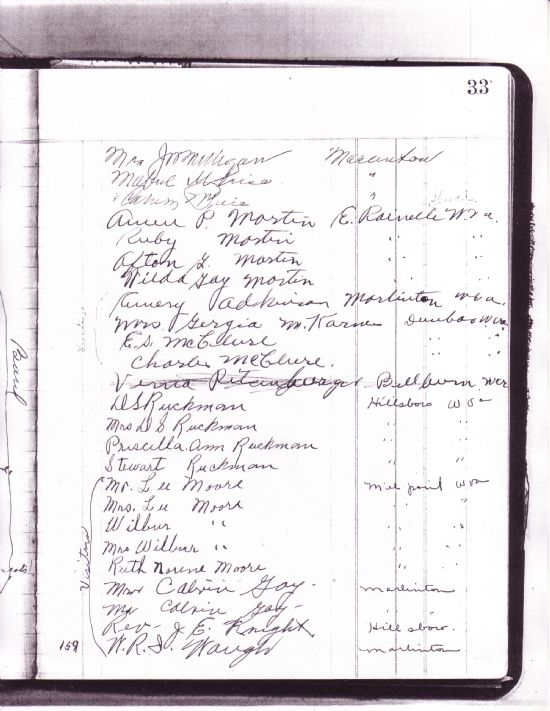 33
Mrs J W Milligan Marlinton
Mabel "
"
Amer P. Martin E. Rainelle W Va.
Ruby Martin " "
Afton G Martin " "
Wilda Gay Martin " "
Emery Adkison Marlinton W Va.
Mrs. Georgia M. Karnes Dunbar W Va
E. D. McClure
Charles McClure.
Verna Bellburn. W Va
D S Ruckman Hillsboro W Va
Mrs D S Ruckman " "
Priscilla Ann Ruckman " "
Stewart Ruckman " "
Mr. Lee Moore Mill point W Va
Mrs. Lee Moore " "
Wilbur " " "
Mrs Wilbur " " "
Ruth Norene Moore " "
Mrs Calvin Gay - Marlinton
Mr Calvin Gay -
Rev - J E. Knight Hillsboro.
159 W. R. S. Waugh Marlinton
Visitors